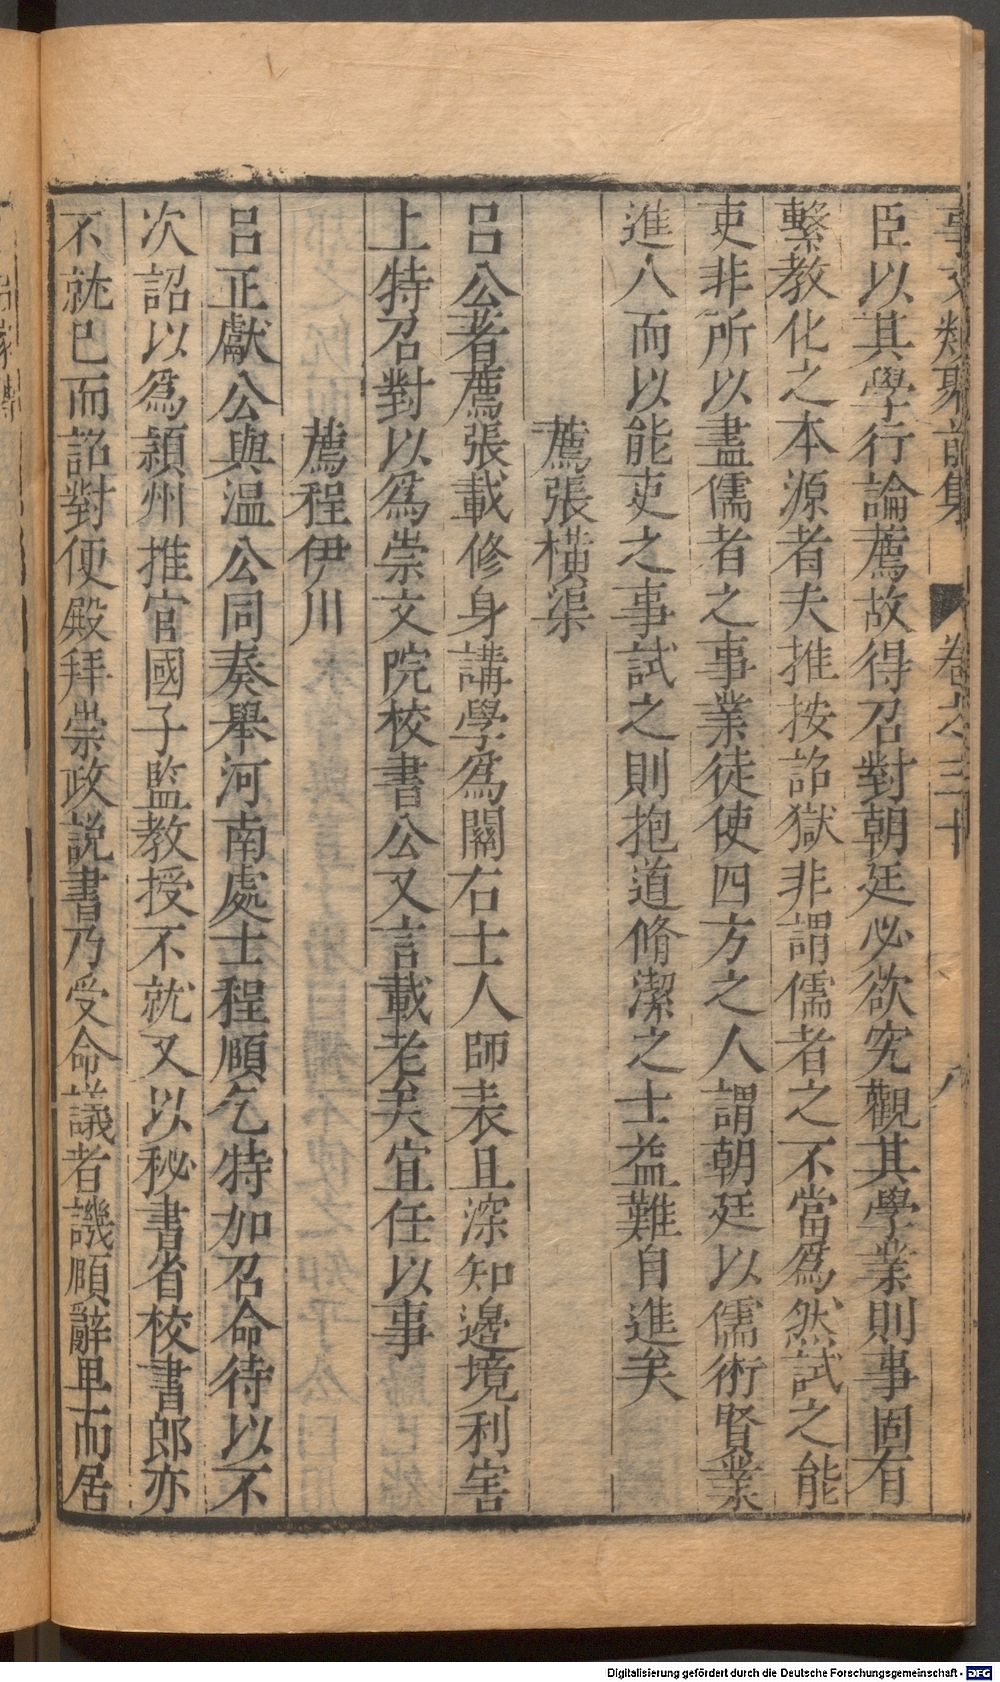 事文類聚前集 卷之三十 八
臣以其學行論薦故得召對朝廷必欲究觀其學業則事固有
繫教化之本源者夫推按詔獄非謂儒者之不當爲然試之能
吏非所以盡儒者之事業徒使四方之人謂朝廷以儒術賢業
進人而以能吏之事試之則抱道脩潔之士益難自進矣
薦張橫渠
呂公著薦張載修身講學爲關右士人師表且深知邊境利害
上特召對以爲崇文院校書公又言載老矣宜任以事
薦程伊川
呂正獻公與温公同奏舉河南處士程頤乞特加召命待以不
次詔以爲潁州推官國子監教授不就又以秘書省校書郎亦
不就已而詔對便殿拜崇政説書乃受命議者譏頤辭卑而居
Digitalisierung gefördert durch die Deutsche Forschungsgemeinschaft - DFG